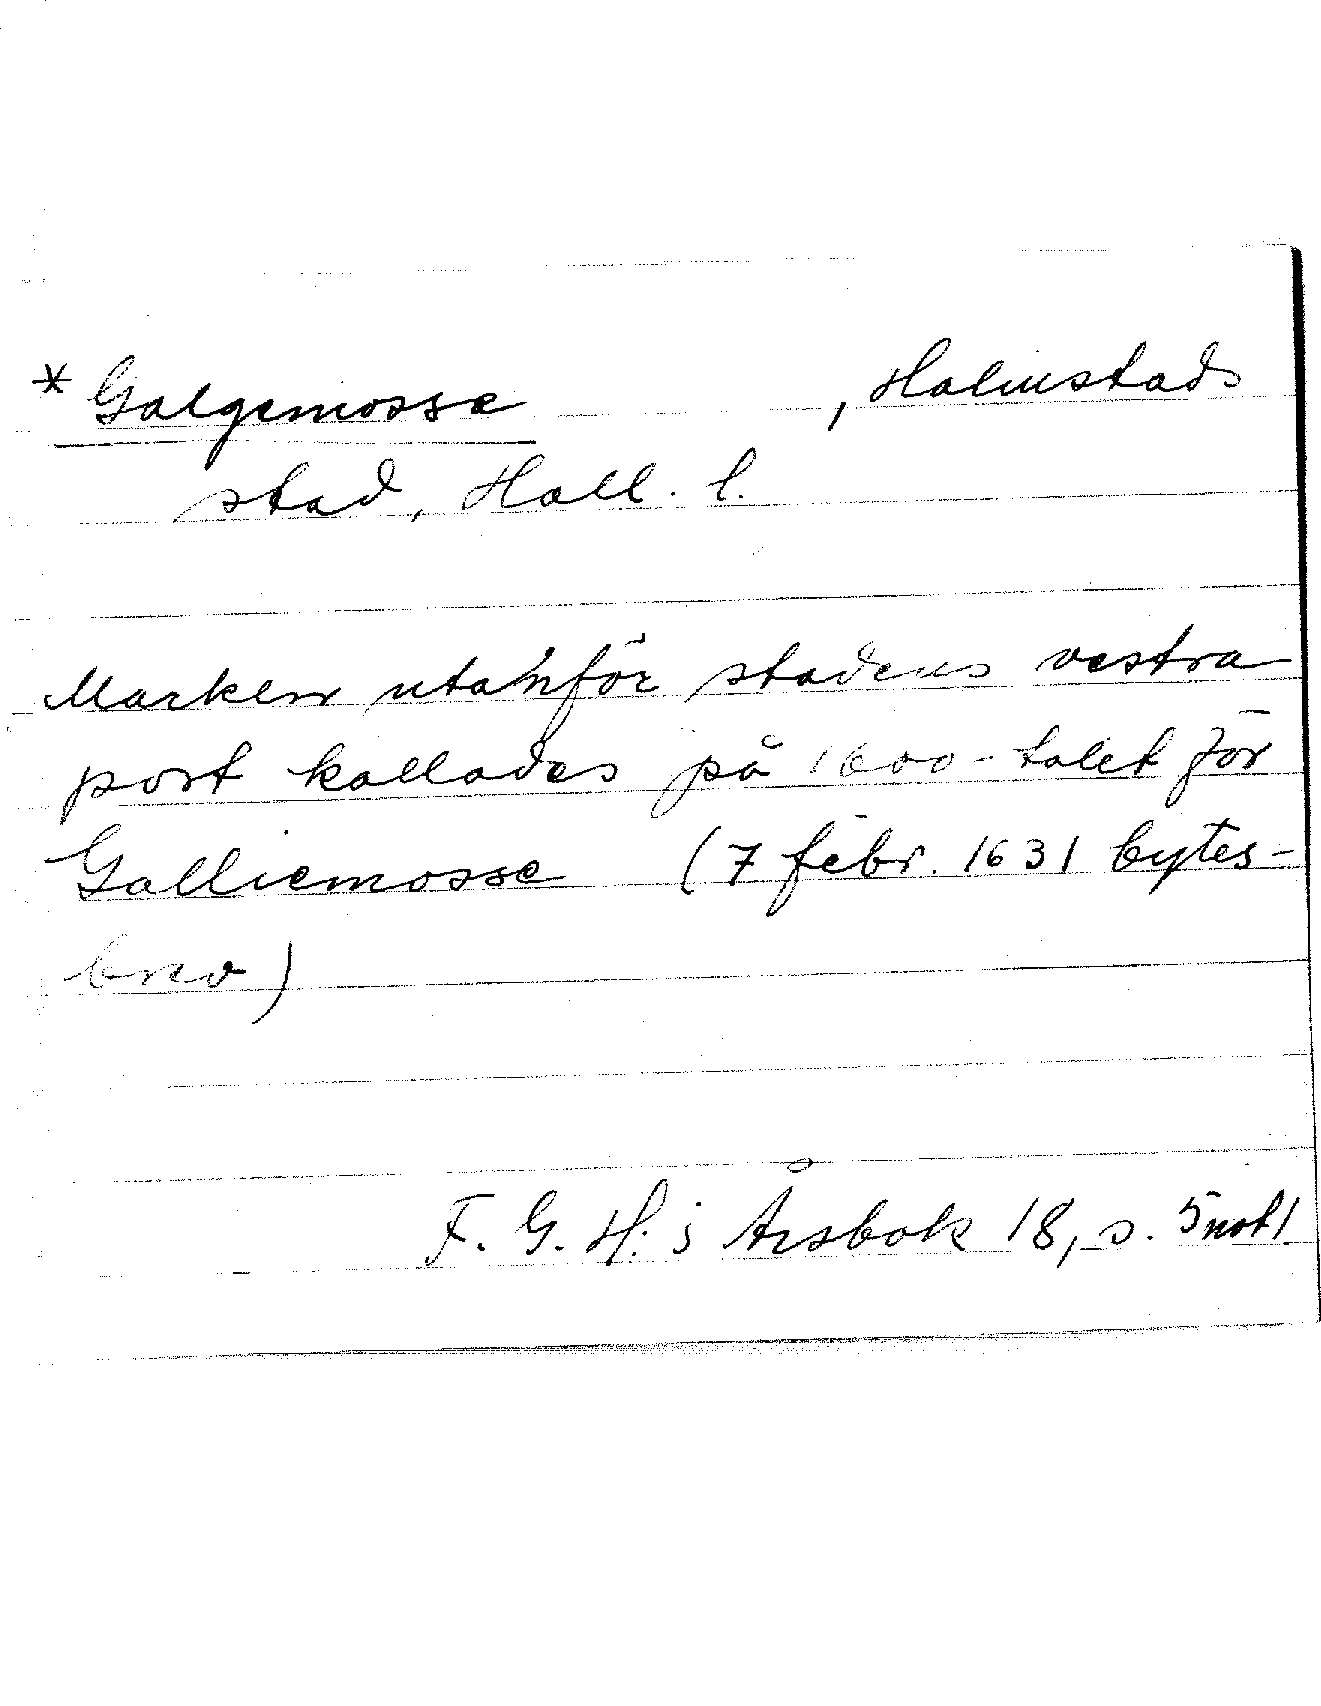 * Galgemosse , Halmstads
stad, Hall. l.
Marken utanför stadens vestra
port kallades på 1600-talet för
Galliemosse (7 febr. 1631 bytes-
brev)
F. G. H:s Årsbok 18, s. 5 not 1